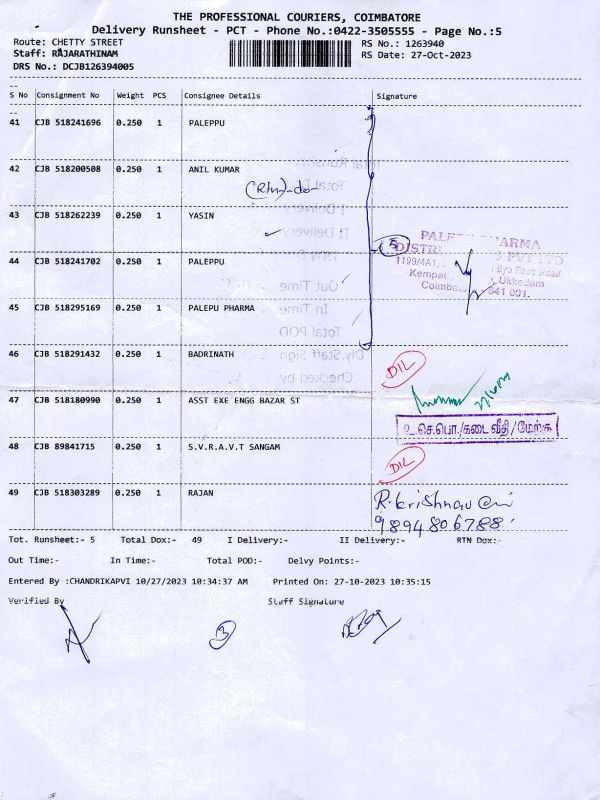 THE PROFESSIONAL COURIERS, COIMBATORE
Delivery Runsheet - PCT - Phone No.:0422-3505555 - Page No.:5
Route: CHETTY STREET
RS No.: 1263940
Staff: RAJARATHINAM
RS Date: 27-Oct-2023
DRS No.: DCJB126394005
S No Consignment No Weight PCS Consignee Details Signature
41 CJB 518241696 0.250 1 PALEPPU
42 CJB 518200508 0.250 1 ANIL KUMAR
(Rtn)-do-
43 CJB 518262239 0.250 1 YASIN
5
PALE PHARMA
DISTRI PVT LTD
1199/4A1, Bye Pass Road
Kempat Ukkadam
Coimbato 641 001.
44 CJB 518241702 0.250 1 PALEPPU
45 CJB 518295169 0.250 1 PALEPU PHARMA
46 CJB 518291432 0.250 1 BADRINATH
D/L
47 CJB 518180990 0.250 1 ASST EXE ENGG BAZAR ST
உ.செ.பொ./கடை வீதி/மேற்கு
48 CJB 89841715 0.250 1 S.V.R.A.V.T SANGAM
D/L
49 CJB 518303289 0.250 1 RAJAN
R.krishnaveni
9894806788
Tot. Runsheet:- 5 Total Dox:- 49 I Delivery:- II Delivery:- RTN Dox:-
Out Time:- In Time:- Total POD:- Delvy Points:-
Entered By :CHANDRIKAPVI 10/27/2023 10:34:37 AM Printed On: 27-10-2023 10:35:15
Verified By Staff Signature
3